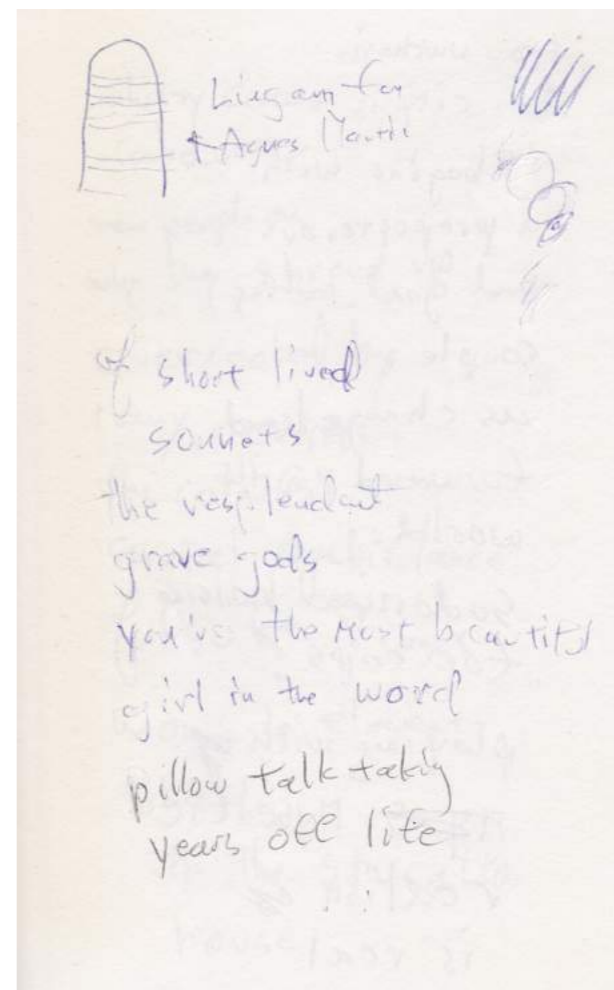 Lingam for
Agnes Martin
of short lived
sonnets
the resplendant
grave gods
you're the most beautiful
girl in the word
pillow talk taking
years off life